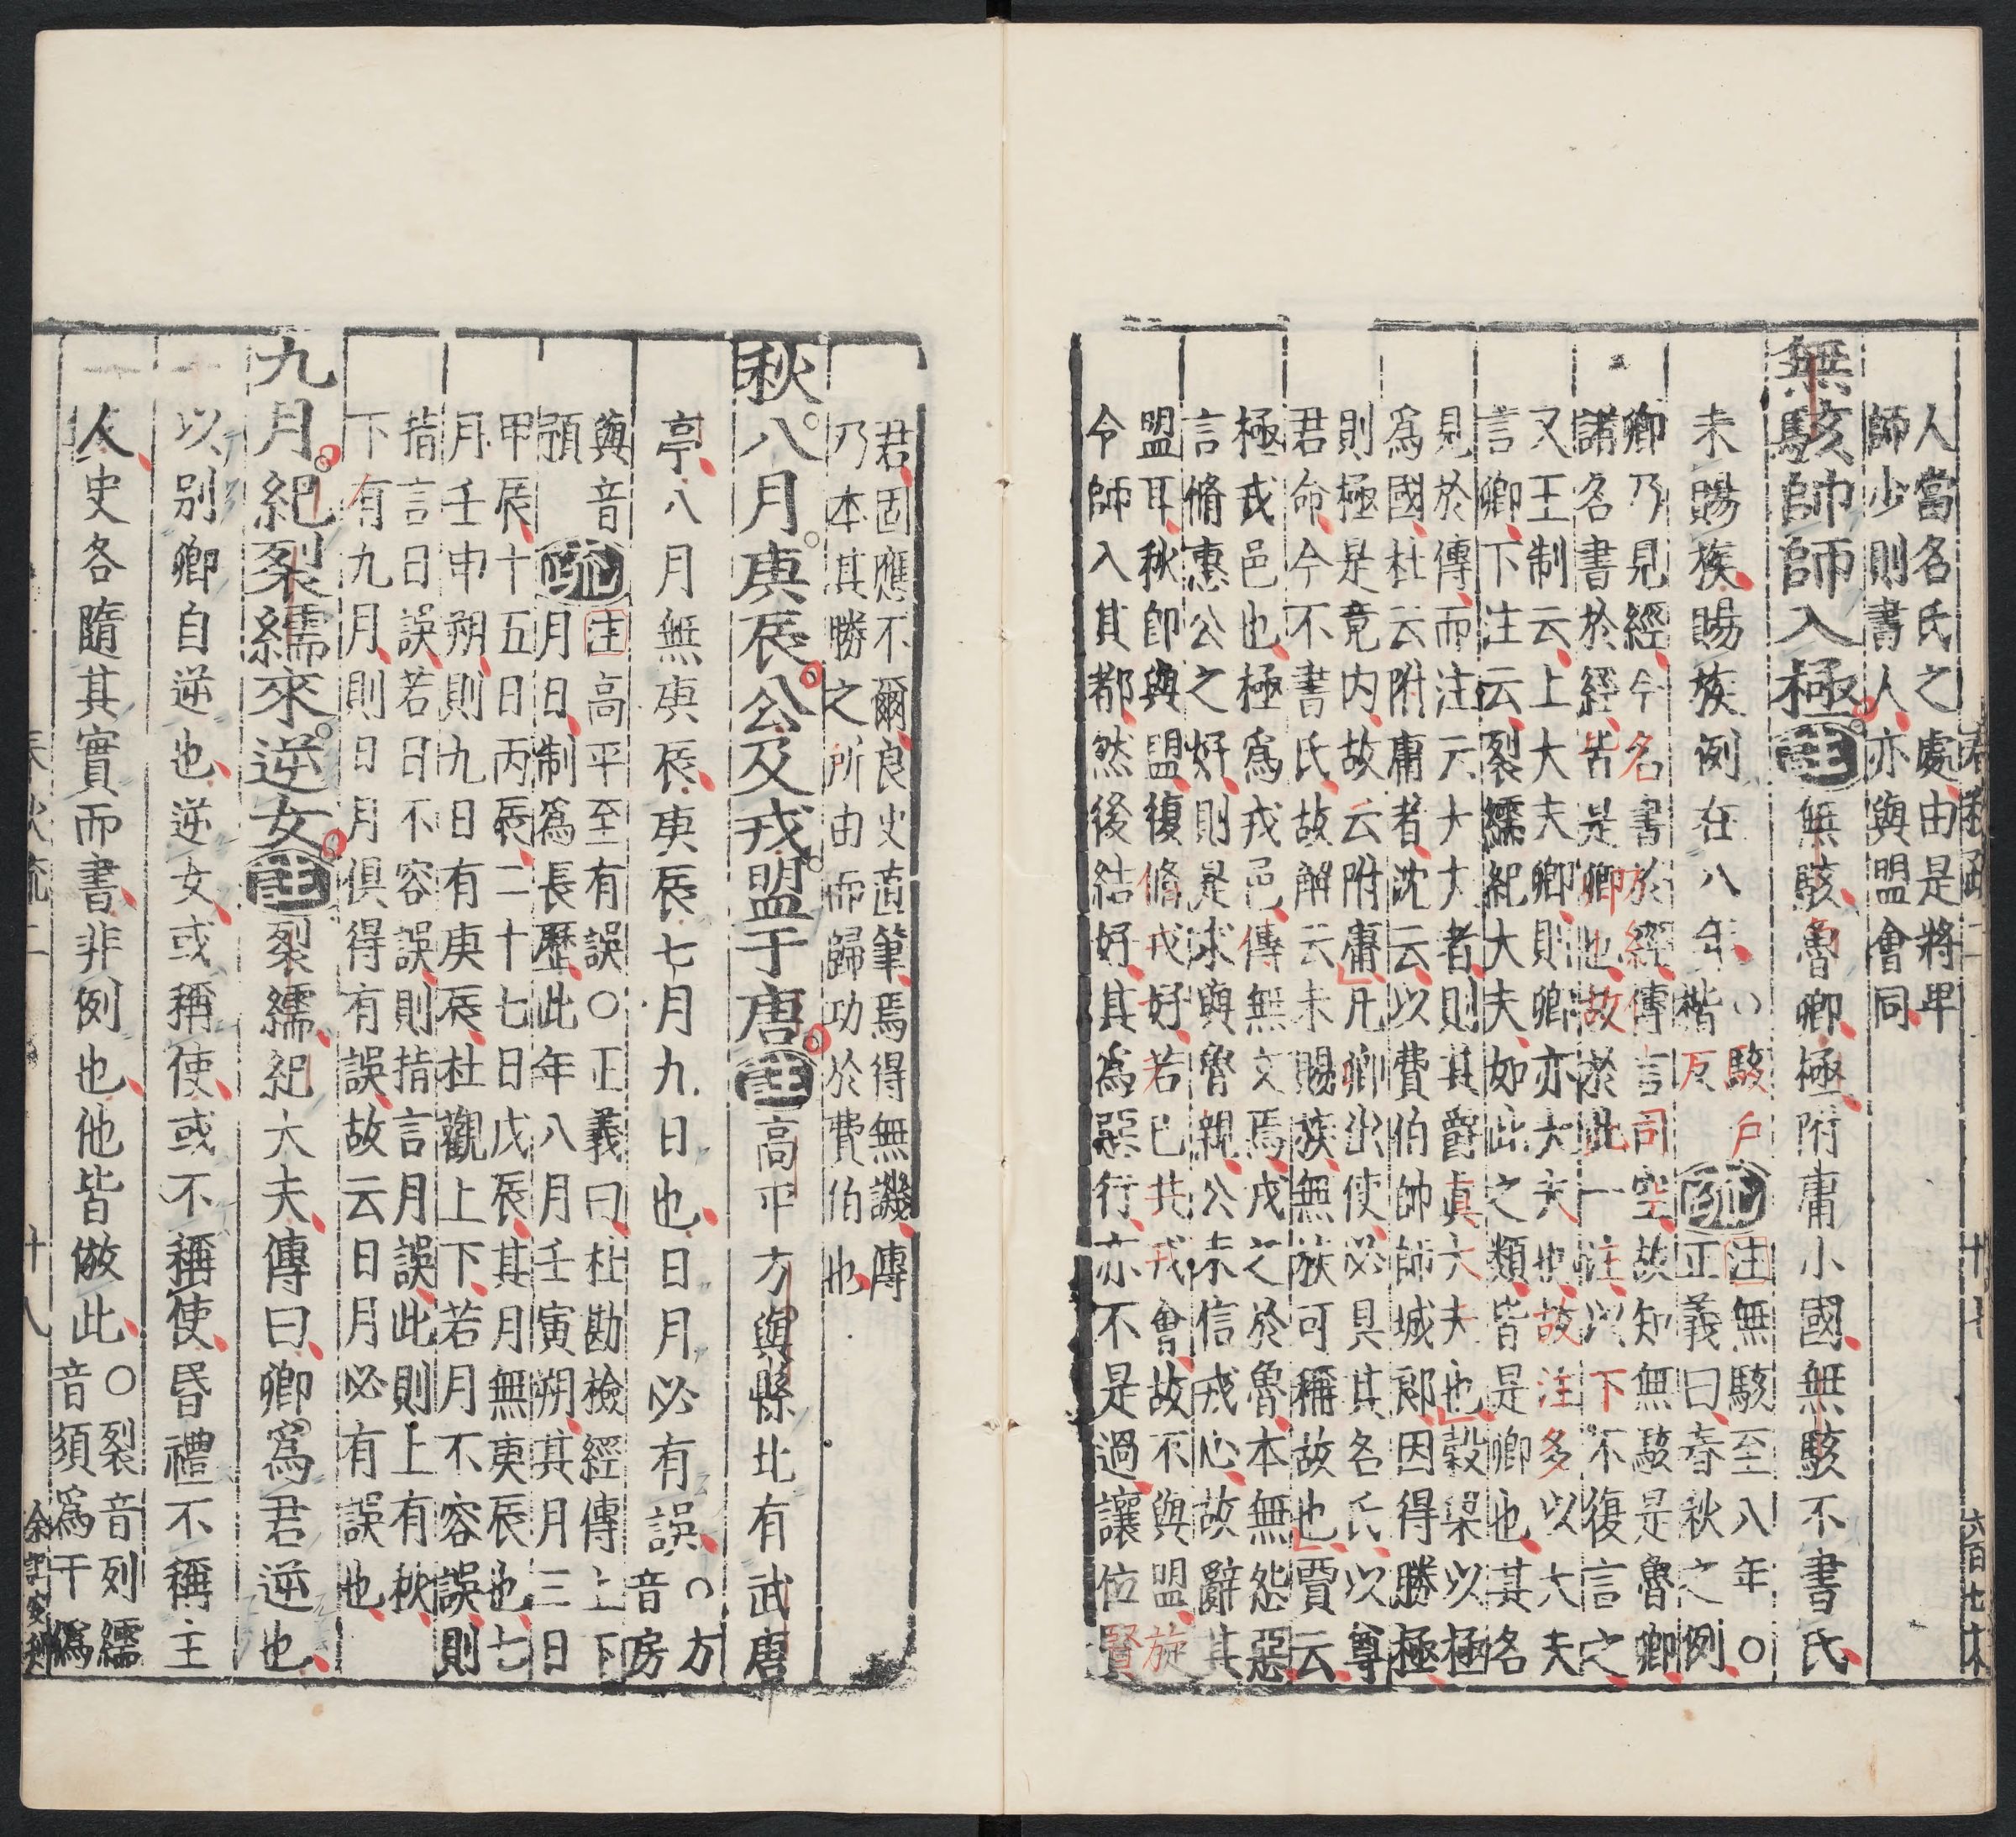 人當名氏之處由是將卑
師少則書人亦與盟會同
無駭帥師入極
注
無駭魯卿極附庸小國無駭不書氏
未賜族賜族例在八年
○駭戶
楷反
疏
注無駭至八年○
正義曰春秋之例
卿乃見經今名書於經傳言司空故知無駭是魯卿
諸名書於經皆是卿也故於此一注以下不復言之
又王制云上大夫卿則卿亦大夫也故注多以大夫
言卿下注云裂繻紀大夫如此之類皆是卿也其名
見於傳而注云大夫者則其爵真大夫也穀梁以極
爲國杜云附庸者沈云以費伯帥師城郎因得勝極
則極是竟内故云附庸凡卿出使必具其名氏以尊
君命今不書氏故解云未賜族無族可稱故也賈云
極戎邑也極爲戎邑傳無文焉戎之於魯本無怨惡
言脩惠公之好則是求與魯親公未信戎心故辭其
盟耳秋卽與盟復脩戎好若已共戎會故不與盟旋
令師入其都然後結好其爲惡行亦不是過讓位賢
君固應不爾良史直筆焉得無譏傳
乃本其勝之所由而歸功於費伯也
秋八月庚辰公及戎盟于唐
注
高平方與縣北有武唐
亭八月無庚辰庚辰七月九日也日月必有誤
○方
音房
與音
預
疏
注高平至有誤○正義曰杜勘檢經傳上下
月日制爲長歷此年八月壬寅朔其月三日
甲辰十五日丙辰二十七日戊辰其月無庚辰也七
月壬申朔則九日有庚辰杜觀上下若月不容誤則
指言日誤若日不容誤則指言月誤此則上有秋
下有九月則日月俱得有誤故云日月必有誤也
九月紀裂繻來逆女
注
裂繻紀大夫傳曰卿爲君逆也
以別卿自逆也逆女或稱使或不稱使昏禮不稱主
人史各隨其實而書非例也他皆倣此
○裂音列繻
音須爲干僞